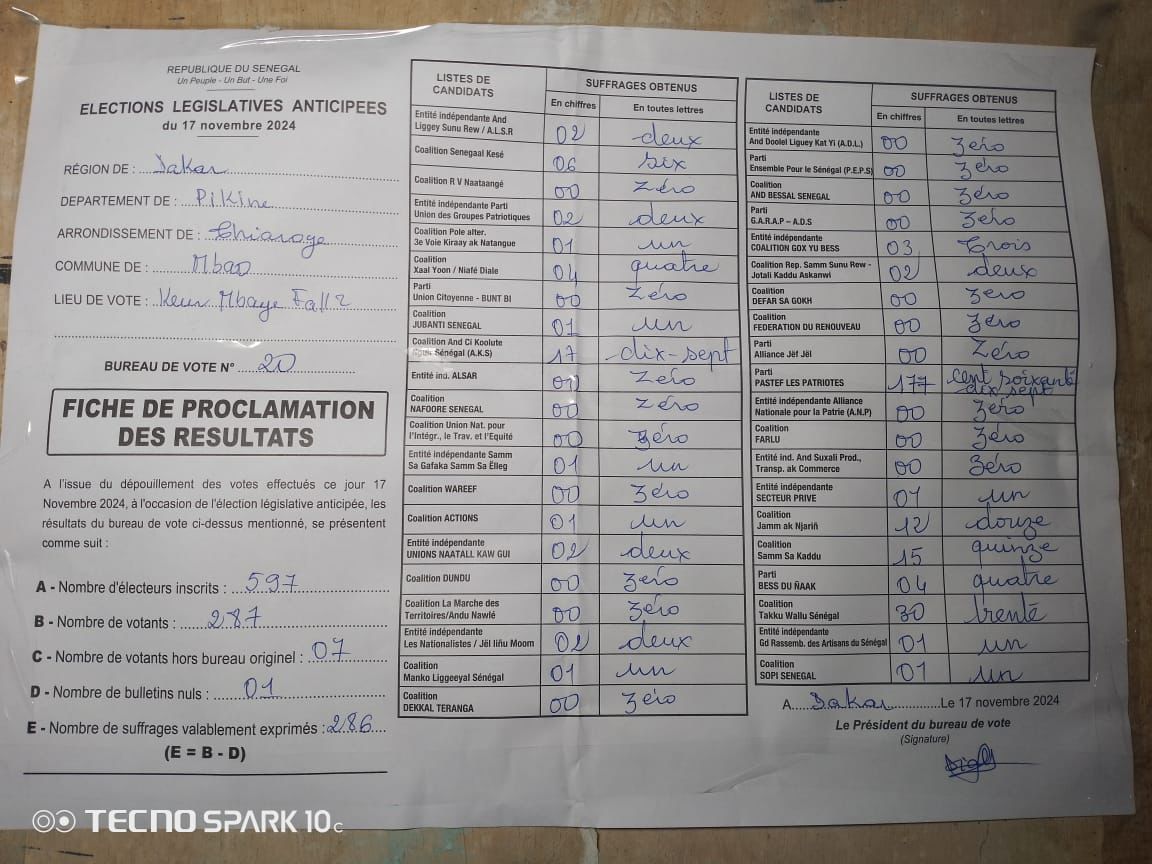 REPUBLIQUE DU SENEGAL
Un Peuple - Un But - Une Foi
ELECTIONS LEGISLATIVES ANTICIPEES
du 17 novembre 2024
RÉGION DE : Dakar
DEPARTEMENT DE : Pikine
ARRONDISSEMENT DE : Thiaroye
COMMUNE DE : Mbao
LIEU DE VOTE : Keur Mbaye Fall 2
BUREAU DE VOTE N° 20
FICHE DE PROCLAMATION
DES RESULTATS
A l'issue du dépouillement des votes effectués ce jour 17
Novembre 2024, à l'occasion de l'élection législative anticipée, les
résultats du bureau de vote ci-dessus mentionné, se présentent
comme suit :
A - Nombre d'électeurs inscrits : 597
B - Nombre de votants : 287
C - Nombre de votants hors bureau originel : 07
D - Nombre de bulletins nuls : 01
E - Nombre de suffrages valablement exprimés : 286
(E = B - D)
LISTES DE CANDIDATS SUFFRAGES OBTENUS
En chiffres En toutes lettres
Entité indépendante And
Liggey Sunu Rew / A.L.S.R 02 deux
Coalition Senegaal Kesé 06 six
Coalition R V Naataangé 00 zéro
Entité indépendante Parti
Union des Groupes Patriotiques 02 deux
Coalition Pole alter.
3e Voie Kiraay ak Natangue 01 un
Coalition
Xaal Yoon / Niafé Diale 04 quatre
Parti
Union Citoyenne - BUNT BI 00 zéro
Coalition
JUBANTI SENEGAL 01 un
Coalition And Ci Koolute
Nguir Sénégal (A.K.S) 17 dix-sept
Entité ind. ALSAR 00 zéro
Coalition
NAFOORE SENEGAL 00 zéro
Coalition Union Nat. pour
l'Intégr., le Trav. et l'Equité 00 zéro
Entité indépendante Samm
Sa Gafaka Samm Sa Ëlleg 01 un
Coalition WAREEF 00 zéro
Coalition ACTIONS 01 un
Entité indépendante
UNIONS NAATALL KAW GUI 02 deux
Coalition DUNDU 00 zéro
Coalition La Marche des
Territoires/Andu Nawlé 00 zéro
Entité indépendante
Les Nationalistes / Jël liñu Moom 02 deux
Coalition
Manko Liggeeyal Sénégal 01 un
Coalition
DEKKAL TERANGA 00 zéro
LISTES DE CANDIDATS SUFFRAGES OBTENUS
En chiffres En toutes lettres
Entité indépendante
And Doolel Liguey Kat Yi (A.D.L.) 00 zéro
Parti
Ensemble Pour le Sénégal (P.E.P.S) 00 zéro
Coalition
AND BESSAL SENEGAL 00 zéro
Parti
G.A.R.A.P – A.D.S 00 zéro
Entité indépendante
COALITION GOX YU BESS 03 trois
Coalition Rep. Samm Sunu Rew -
Jotali Kaddu Askanwi 02 deux
Coalition
DEFAR SA GOKH 00 zéro
Coalition
FEDERATION DU RENOUVEAU 00 zéro
Parti
Alliance Jëf Jël 00 zéro
Parti
PASTEF LES PATRIOTES 177 cent soixante
dix sept
Entité indépendante Alliance
Nationale pour la Patrie (A.N.P) 00 zéro
Coalition
FARLU 00 zéro
Entité ind. And Suxali Prod.,
Transp. ak Commerce 00 zéro
Entité indépendante
SECTEUR PRIVE 01 un
Coalition
Jamm ak Njariñ 12 douze
Coalition
Samm Sa Kaddu 15 quinze
Parti
BESS DU ÑAAK 04 quatre
Coalition
Takku Wallu Sénégal 30 trente
Entité indépendante
Gd Rassemb. des Artisans du Sénégal 01 un
Coalition
SOPI SENEGAL 01 un
A Dakar Le 17 novembre 2024
Le Président du bureau de vote
(Signature)
TECNO SPARK 10C